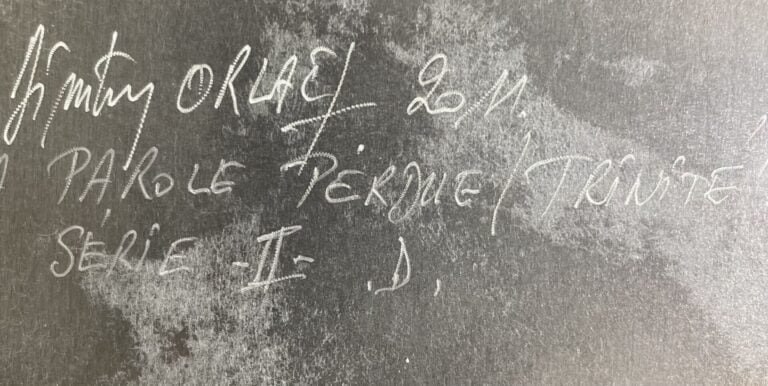 Dimitry ORLAC / 2011.
PAROLE PERDUE / TRINITÉ
SÉRIE -II- .D.